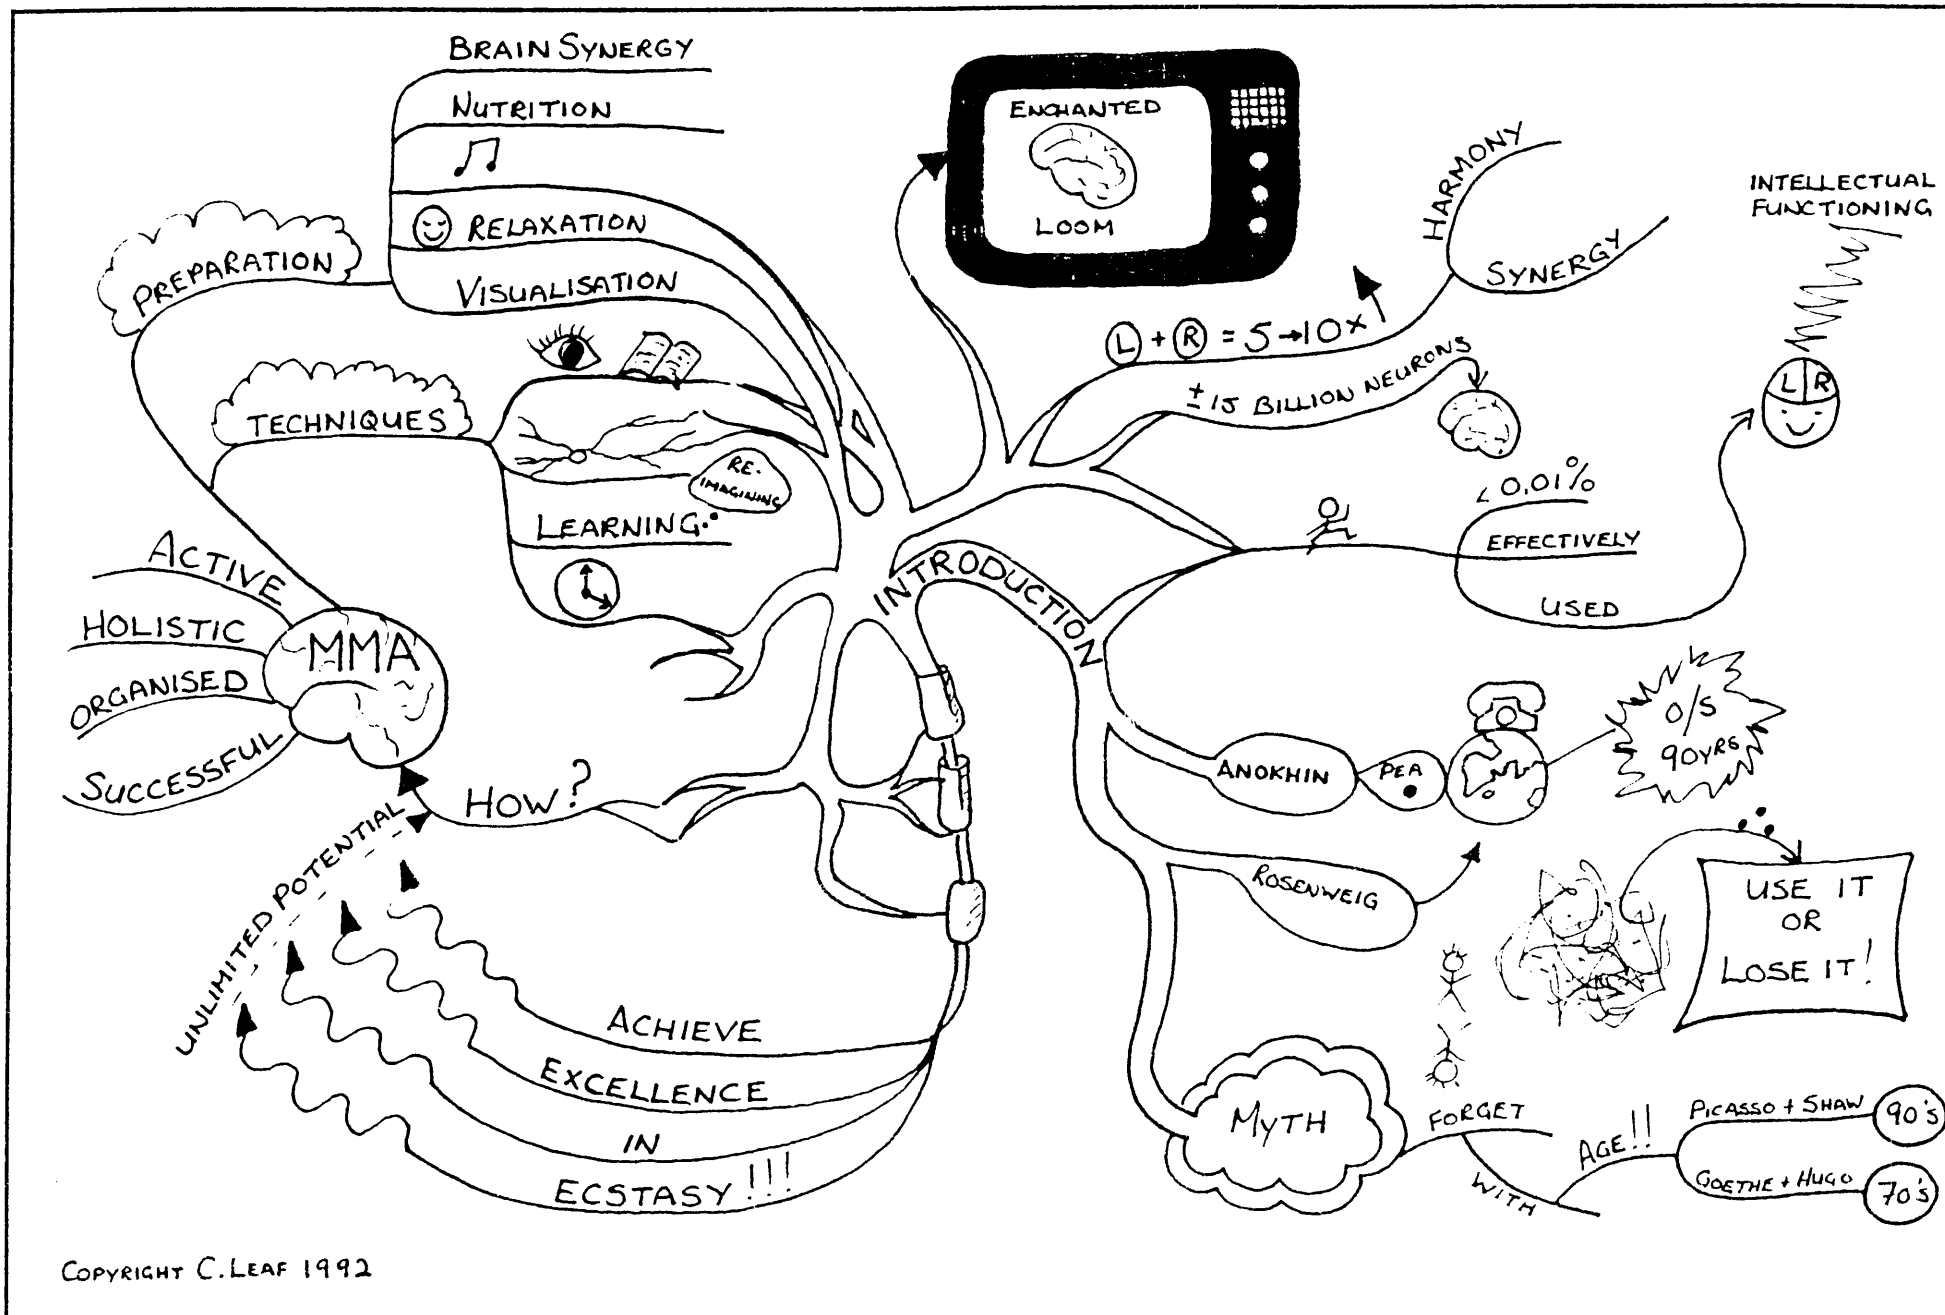 BRAIN SYNERGY
NUTRITION
RELAXATION
VISUALISATION
PREPARATION
TECHNIQUES
RE-
IMAGINING
LEARNING..
ACTIVE
HOLISTIC
ORGANISED
SUCCESSFUL
MMA
HOW?
UNLIMITED POTENTIAL
ACHIEVE
EXCELLENCE
IN
ECSTASY!!!
INTRODUCTION
ENCHANTED
LOOM
L + R = 5→10x
HARMONY
SYNERGY
± 15 BILLION NEURONS
INTELLECTUAL
FUNCTIONING
L R
< 0.01%
EFFECTIVELY
USED
ANOKHIN
PEA
O/S
90YRS
ROSENWEIG
USE IT
OR
LOSE IT!
MYTH
FORGET
WITH
AGE!!
PICASSO + SHAW 90's
GOETHE + HUGO 70's
COPYRIGHT C. LEAF 1992